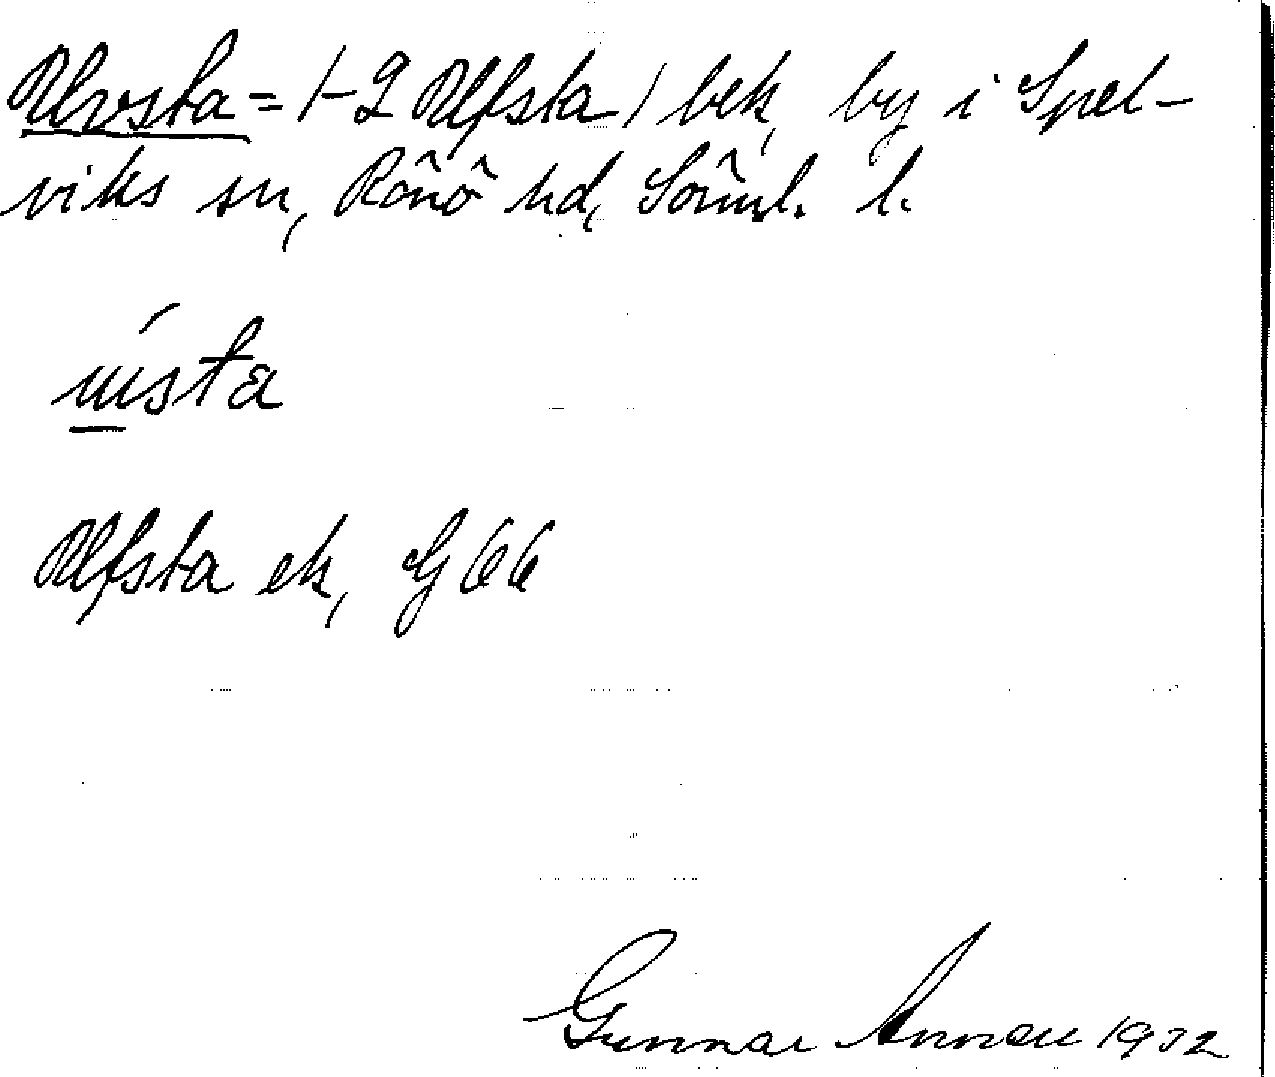 Ulvsta = 1-2 Ulfsta / bek, by i Spel-
viks sn, Rönö hd, Sörml. l.
ústa
Ulfsta ek, G 66
Gunnar 1932